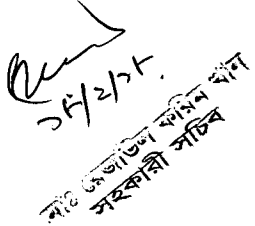 ১৮/২/১৮.
মোঃ রেজাউল করিম খান
সহকারী সচিব